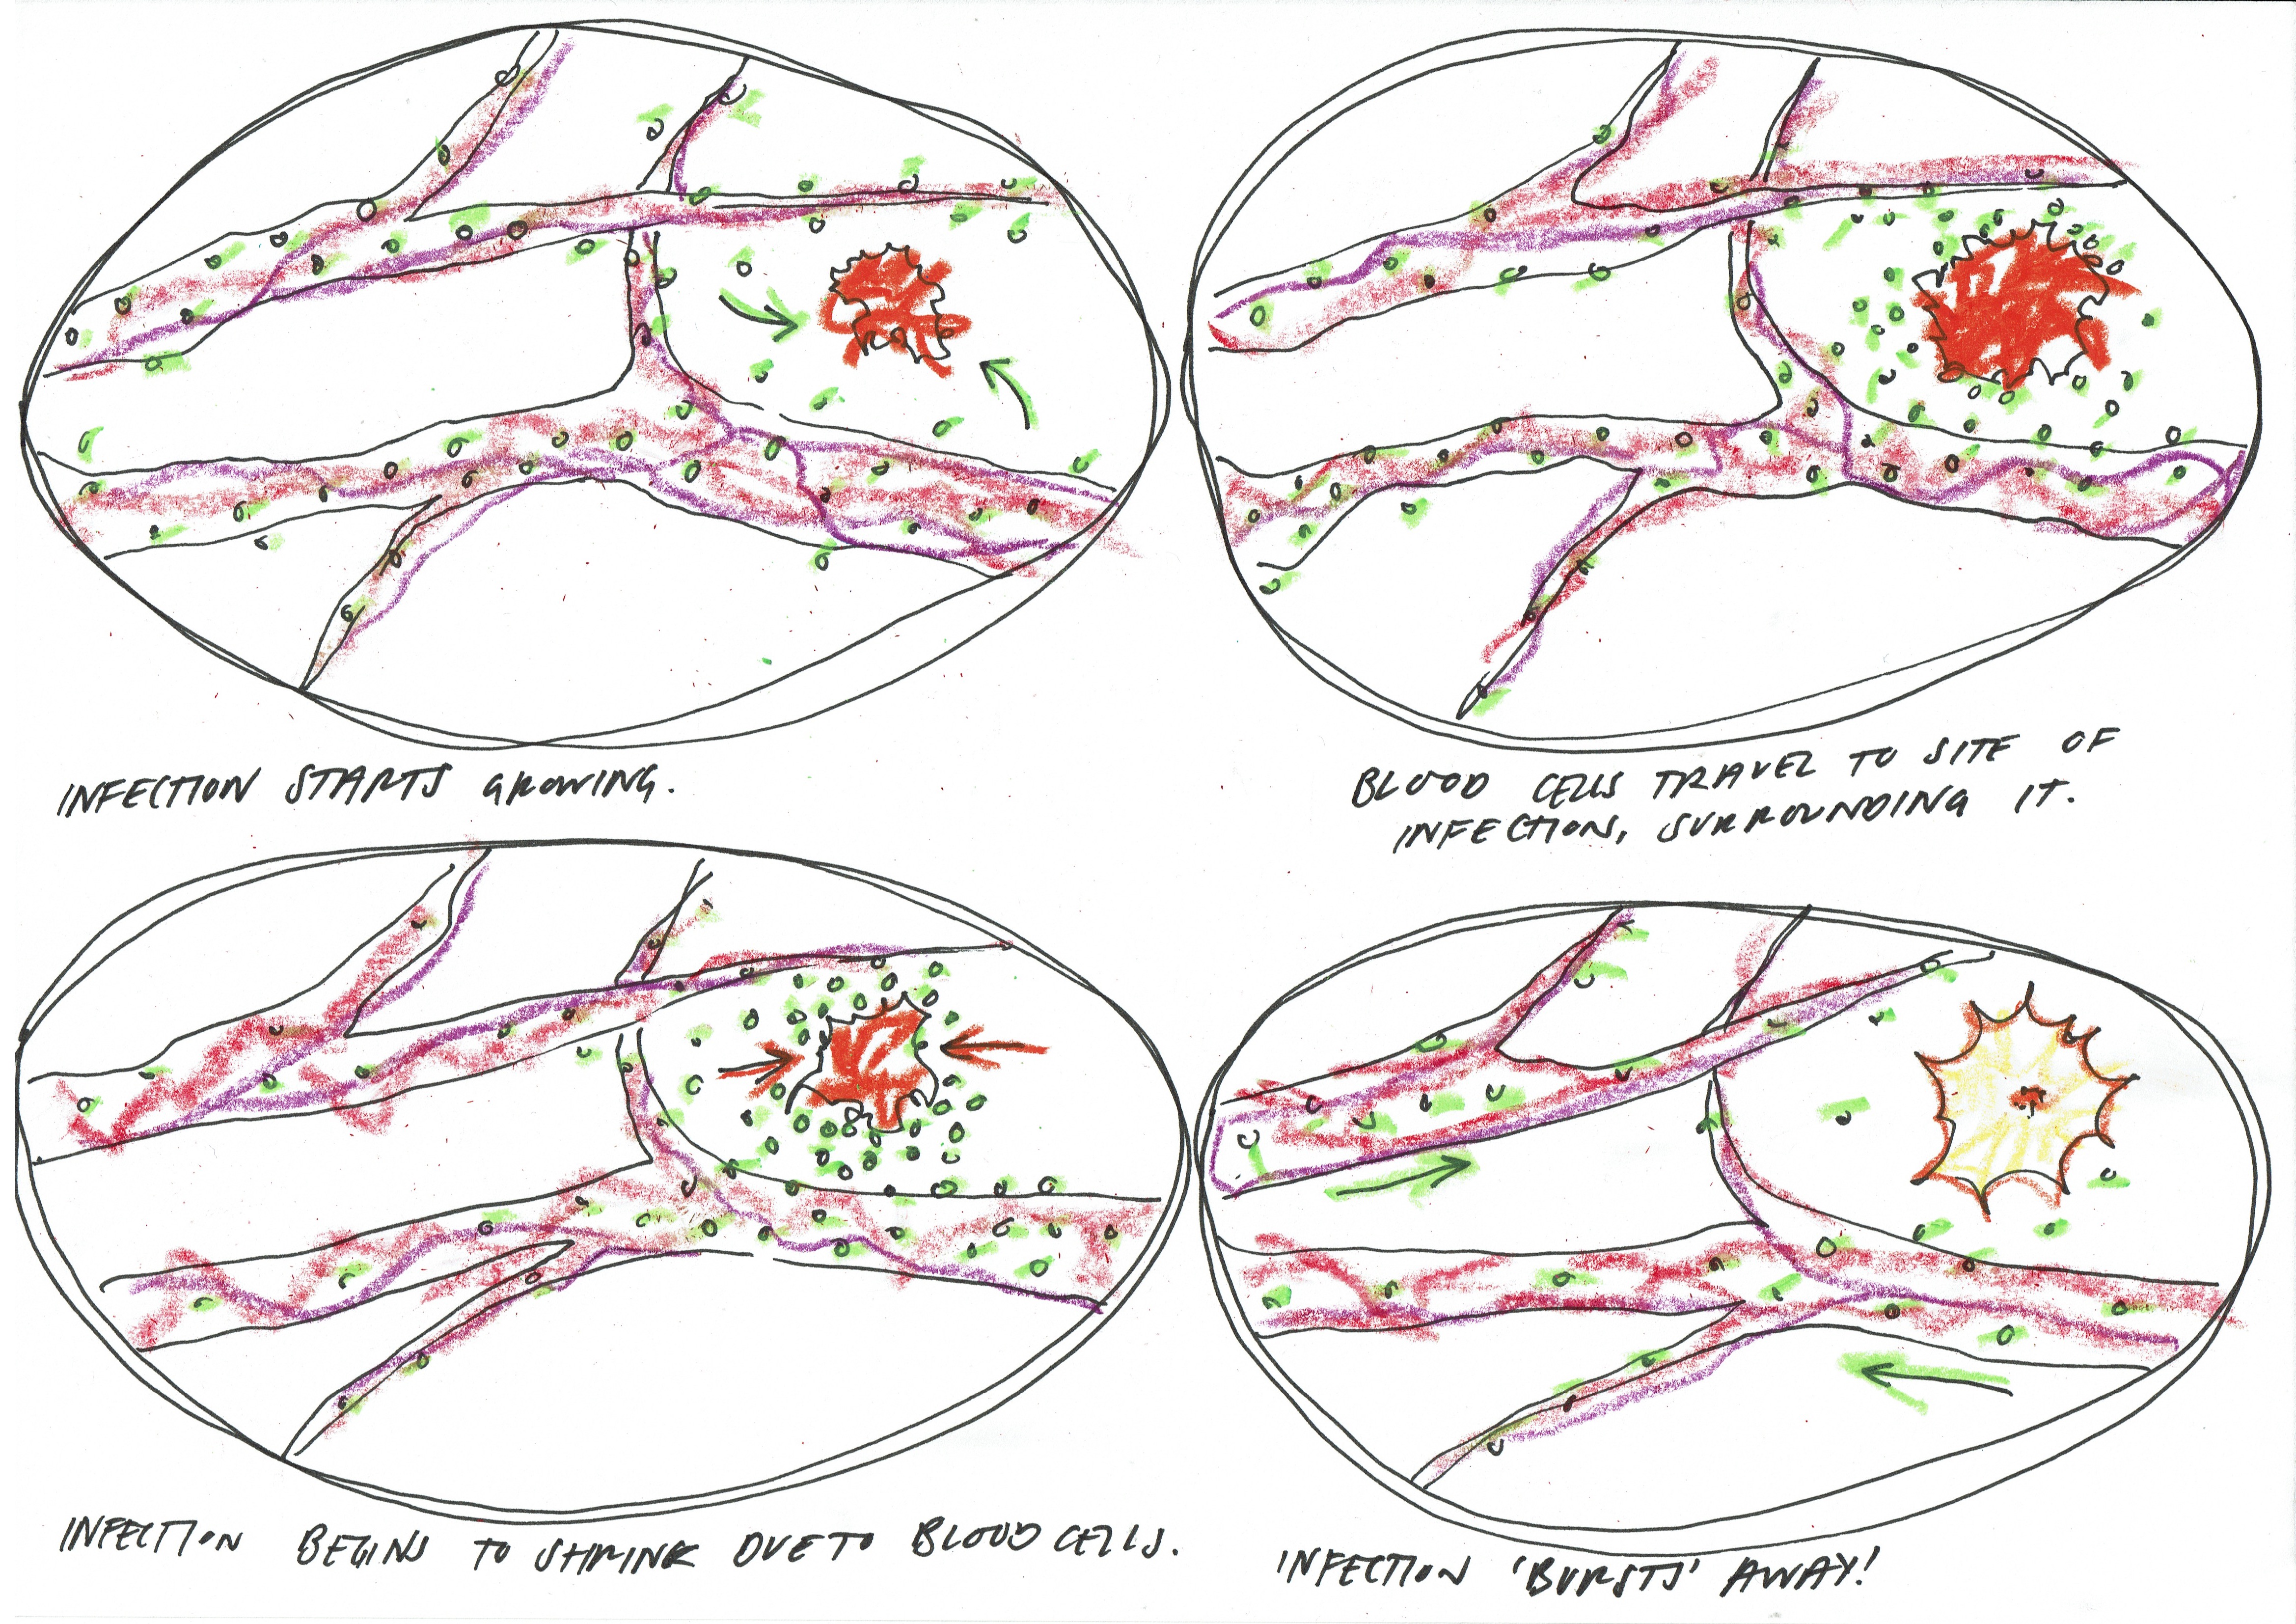 INFECTION STARTS GROWING.
BLOOD CELLS TRAVEL TO SITE OF
INFECTION, SURROUNDING IT.
INFECTION BEGINS TO SHRINK DUE TO BLOOD CELLS.
INFECTION 'BURSTS' AWAY!